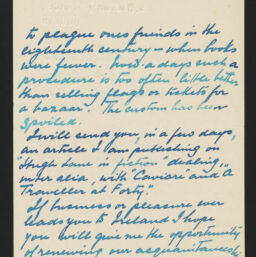 to plague ones friends in the
eighteenth century – when books
were fewer. Now a days such a
procedure is too often little better
than selling flags or tickets for
a bazaar. The custom has been
spoiled.
I will send you, in a few days,
an article I am publishing on
"Hugh Lane in fiction" dealing,
inter alia, with "Caviare" and "A
Traveller at Forty".
If business or pleasure ever
leads you to Ireland I hope
you will give me the opportunity
of renewing our acquaintanceship